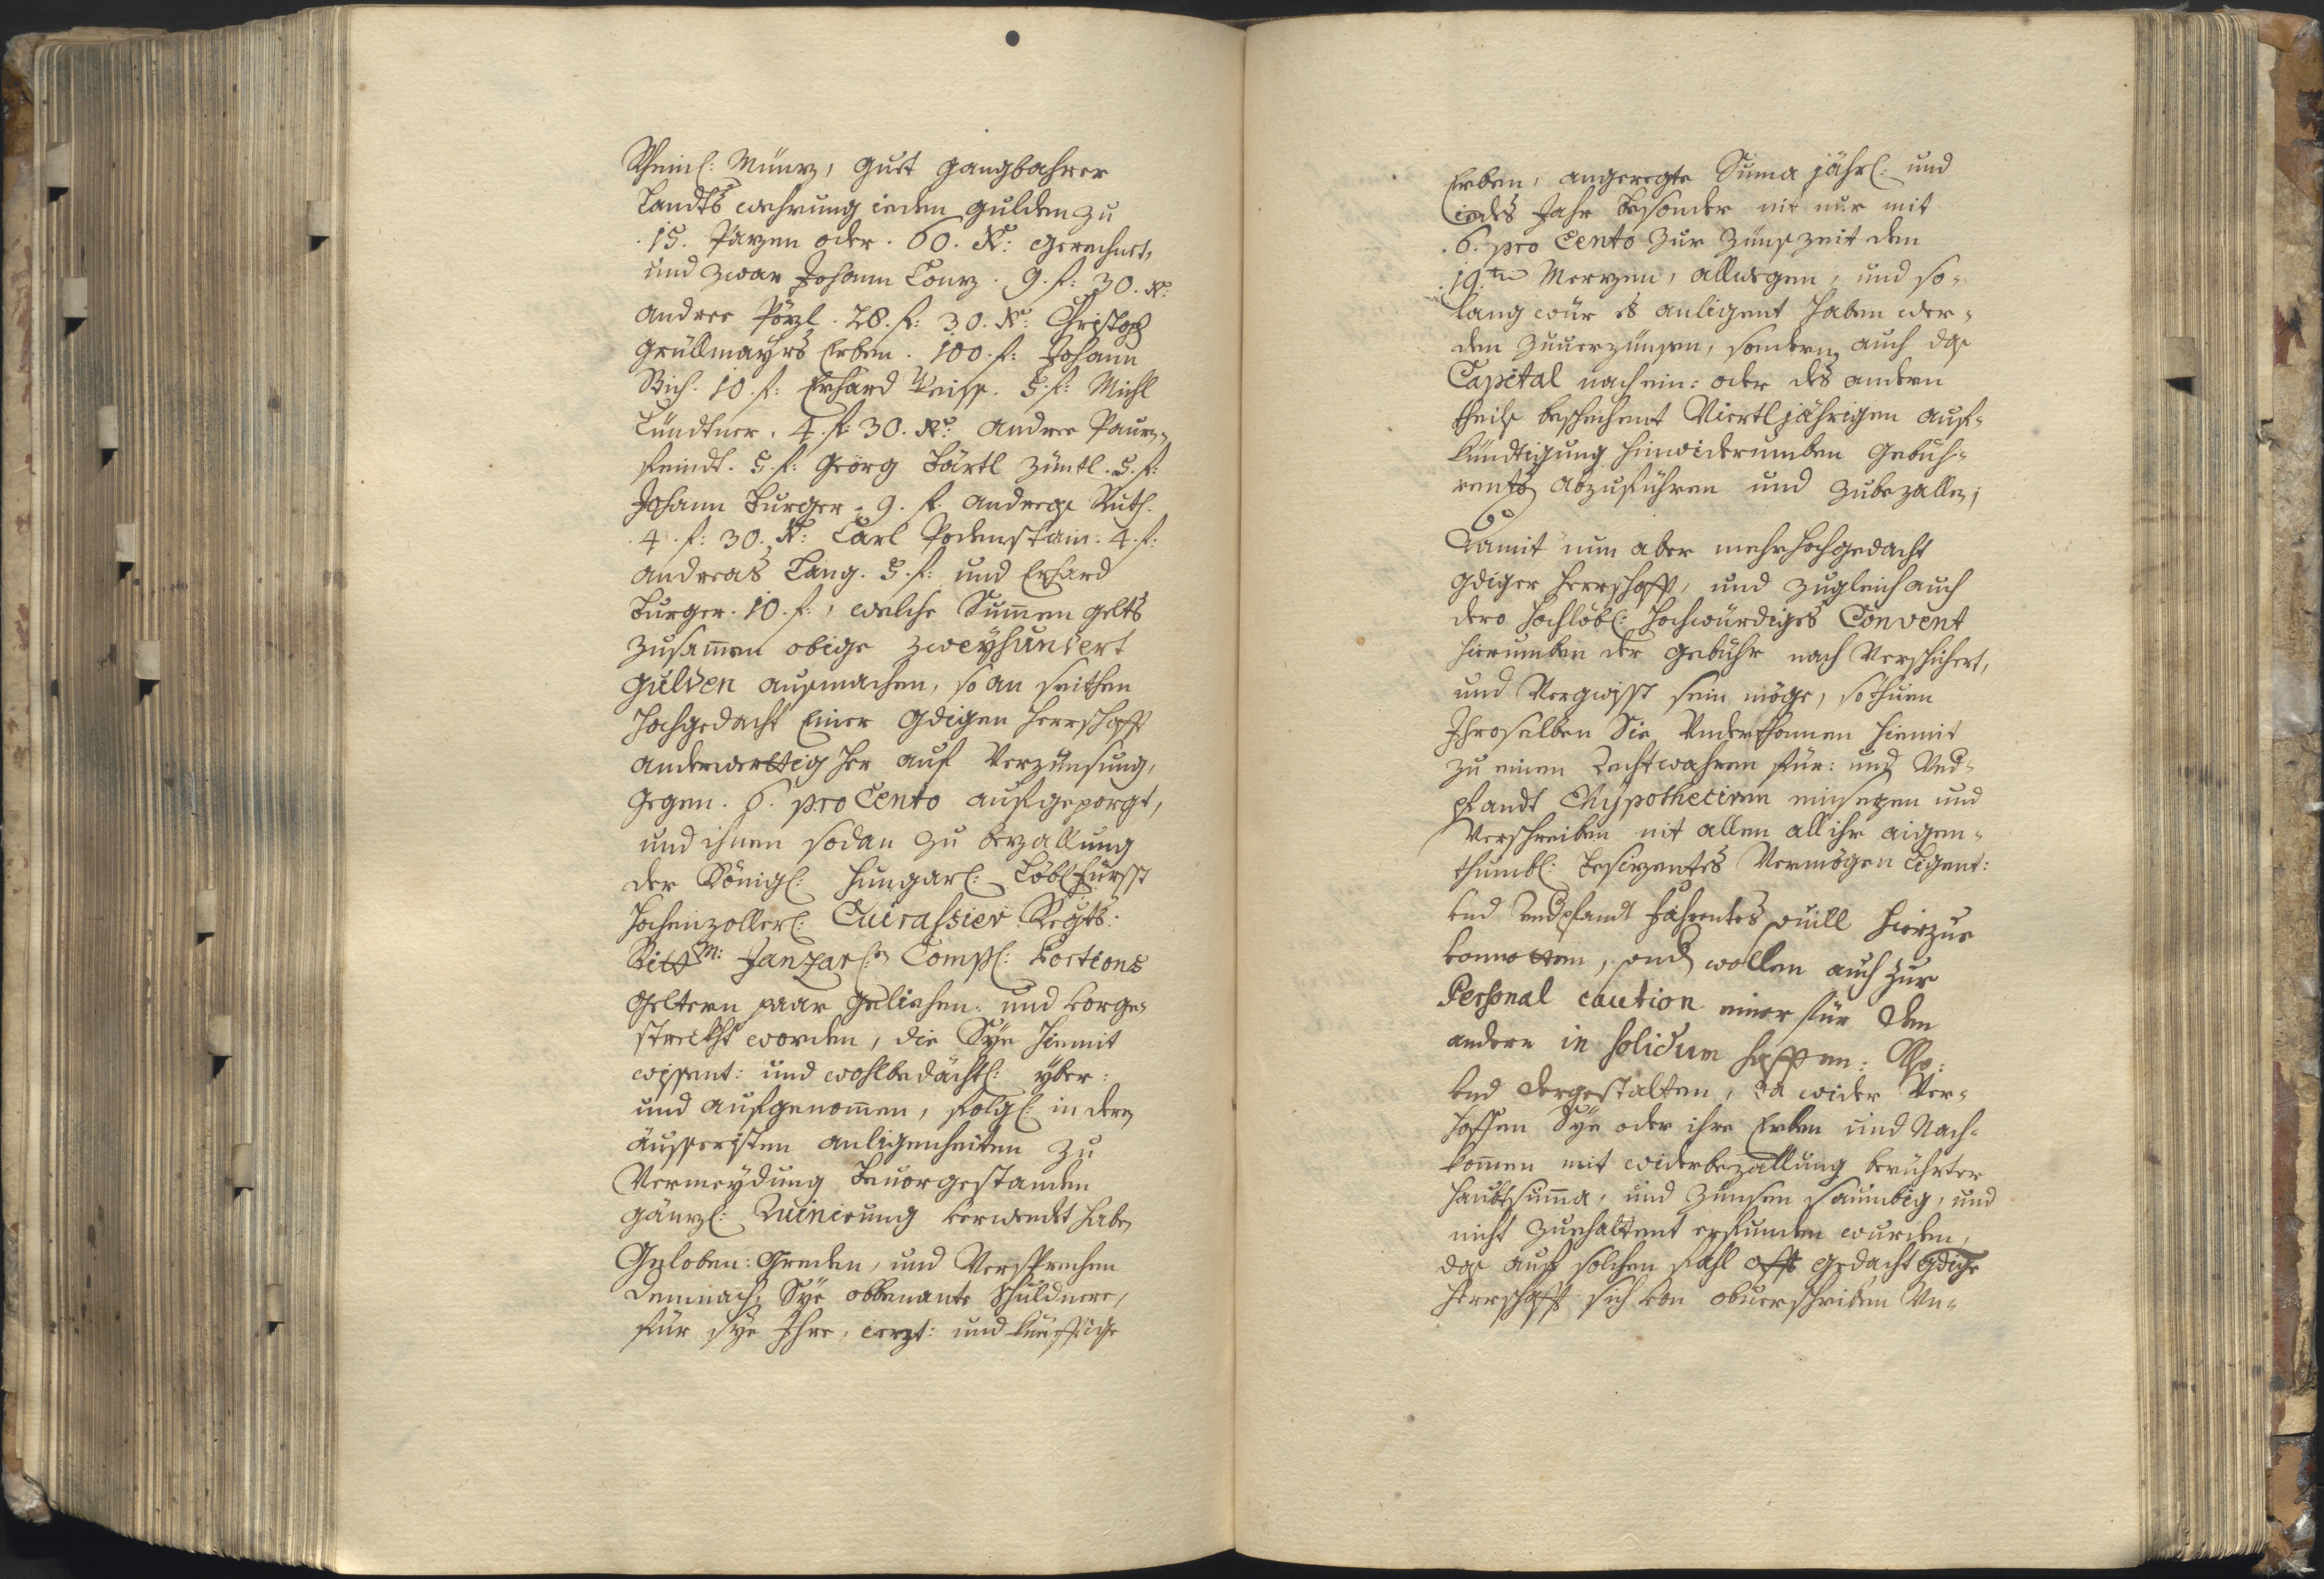 Rheinl: Münz, guet gangbahrer
Landts wehrung ieden gulden zu
.15. Pazen oder .60. Kr: gerechnet,
und zwar Johann Conz . 9. f: 30. Kr:
Andree Pözl . 28. f: 30. Kr: Christoph
Grüllmayrs Erben . 100. f: Johann
Rich. 10. f: Erhard Weiss. 5. f: Michl
Lündtner. 4. f: 30. Kr: Andree Paurn-
feindt. 5. f: Georg Bärtl Züntl. 5. f:
Johann Burger . 9. f. Andreas Ruth.
.4. f: 30. Kr: Carl Podenstain. 4. f:
Andreas Lang. 5. f: und Erhard
Burger. 10. f:, welche Summen gelts
zusammen obige zweyhundert
gulden ausmachen, so an seithen
hochgedacht Einer Gdigen Herrschafft
anderwerttig her auf Verzünsung,
gegen. 6. pro Cento aufgeporgt,
und ihnen sodan zu bezallung
der Königl: Hungarl: Löbl Fürst
Hochenzollerl: Cuirassier Regts:
Rittm: Janzarl: Comp: Portions
Geltern paar gelichen: und vorge-
streckht worden, die Sye hiemit
wissent: und wohlbedächtl: yber:
und aufgenommen, folgl: in dero
äusseristen anligenheiten zu
Vermeydung Bevorgestanden
gänzl: Ruinirung verwendt haben
Geloben: Greden, und Versprechen
demnach Sye obbenante Schuldnere,
für sye Ihre, iezt: und künfftige
Erben, angeregte Suma jährl: und
iedes Jahr besonder nit nur mit
.6. pro Cento zur Zünszeit den
.19.ten Merzen, allwegen, und so-
lang wür es anligent haben wer-
den zuuerzünsen, sondern auch das
Capital nach ein: oder des andern
theils beschehent Viertljährigen auf-
kündtigung hinwiderumben gebüh-
rents abzuführen und zubezallen;
Damit nun aber mehr hochgedacht
gdiger Herrschafft, und zugleich auch
dero hochlöbl: Hochwürdiges Convent
hierumben der gebühr nach Versichert,
und Vergwisst sein möge, so thuen
Ihroselben Sie Underthonnen hiemit
zu einen Rechtwahren für: und Und-
pfandt Ehypotheciren einsezen und
Verschreiben mit allen all ihr aigen-
thumbl: besizentes Vermögen Ligent:
und Undpfandt fahrentes vill hierzue
vonnetten, und wollen auch zur
Personal caution einer für den
andern in solidum hafften:
Und dergestalten, da wider Ver-
hoffen Sye oder ihre Erben und Nach-
kommen mit widerbezallung berührter
Haubtsumma, und Zünsen saumbig, und
nicht zuehaltent erfunden wurden,
das auf solchen fahl offt gedacht gdige
Herrschafft sich von obuerschriben Un-